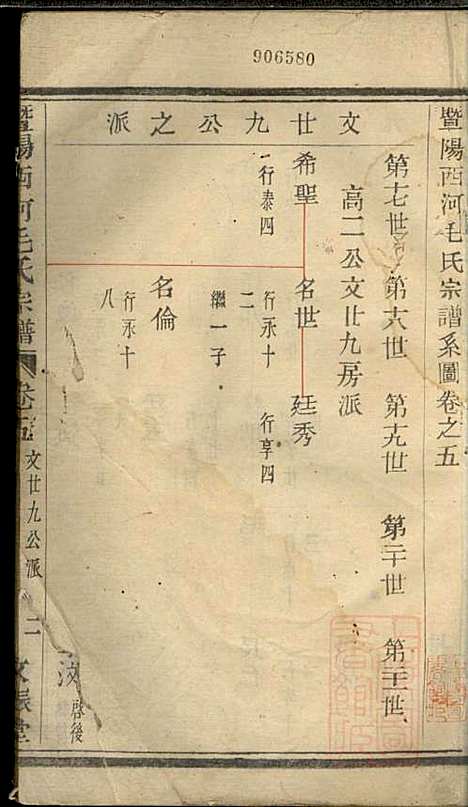 906580
暨陽西河毛氏宗譜系圖卷之五
文廿九公之派
第十七世 第十八世 第十九世 第二十世 第二十一世
高二公文廿九房派
希聖 名世 廷秀
行泰四
行永十二
行享四
繼一子
名倫
行永十八
暨陽西河毛氏宗譜 卷之五 文廿九公派 二
啓後